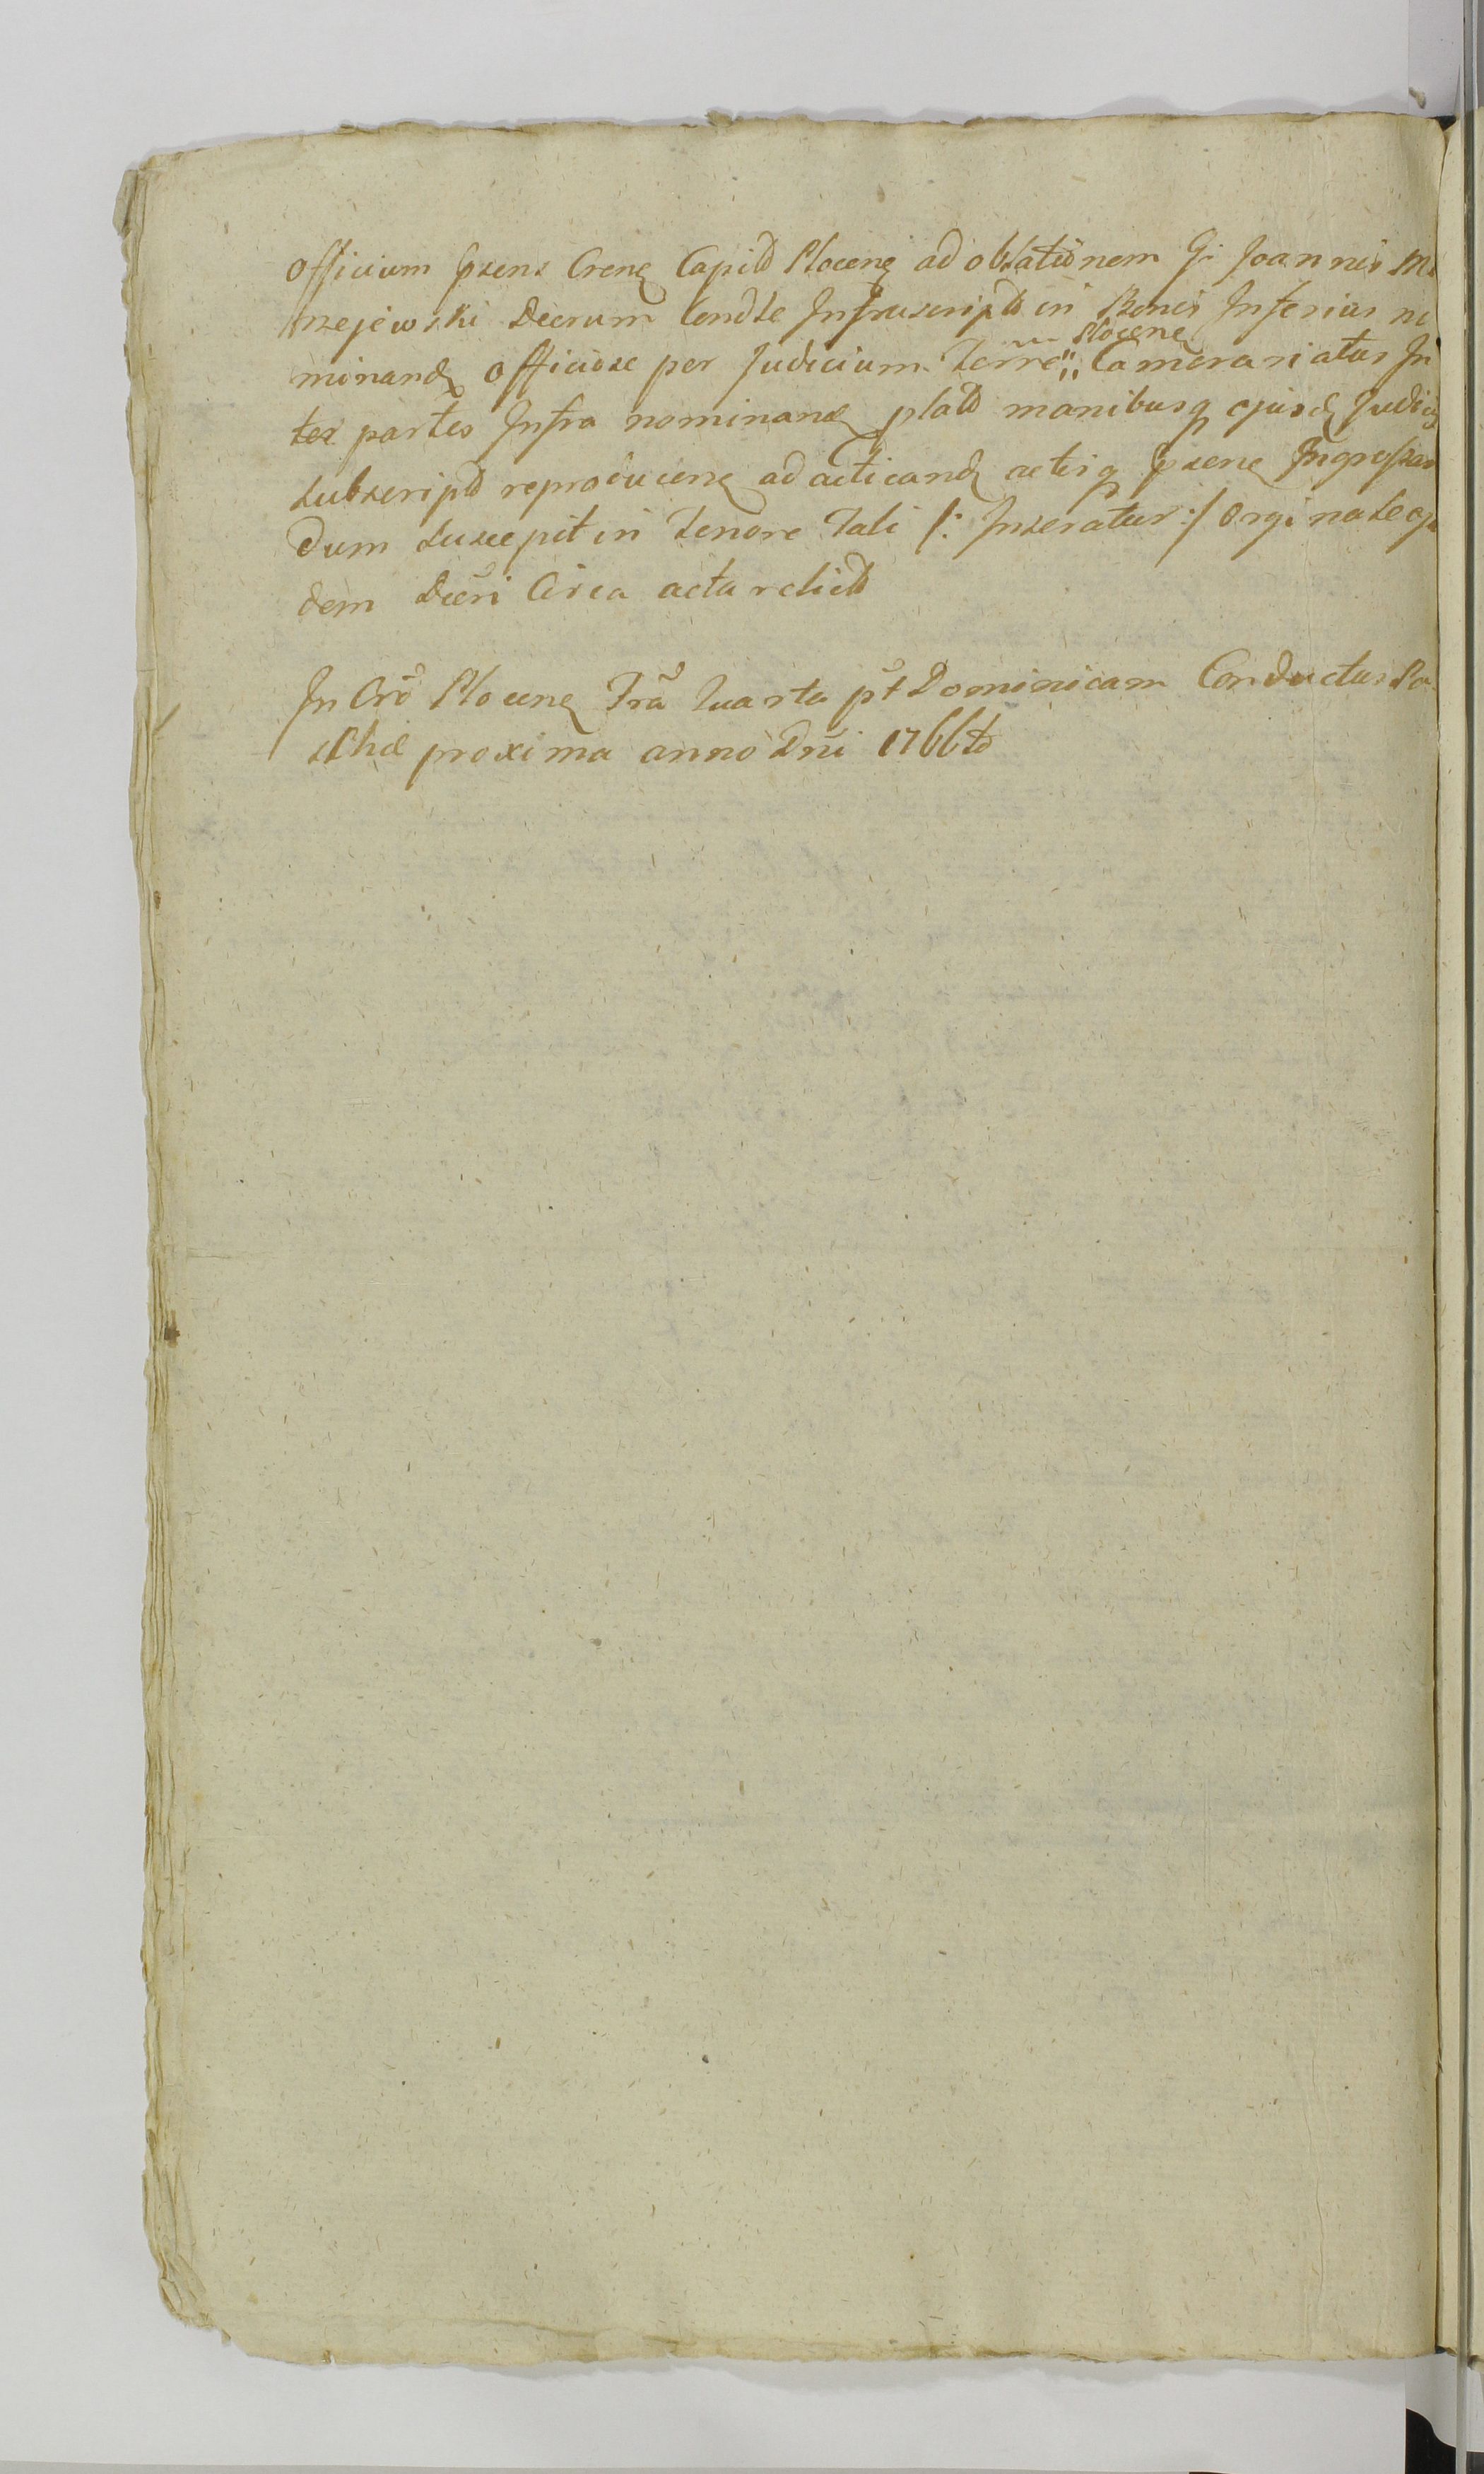 Officium psens Crense Capitd Plocense ad oblationem G: Joannis M
szejewski Decrum Condle Infrascriptd in Bonis Inferius no
minand officiose per Judicium Terre „ Plocense Camerariatus In
ter partes Infra nominand platd manibusq ejusd Judicy
subscriptd reproducens ad acticand actisq psens Ingrossan
dum suscepit in tenore tali /: Inseratur :/ Orginale eju
dem Decri Circa acta relictd
In Cro Plocense Fra Quarta pt Dominicam Conductus Pa
schæ proxima anno Dni 1766to